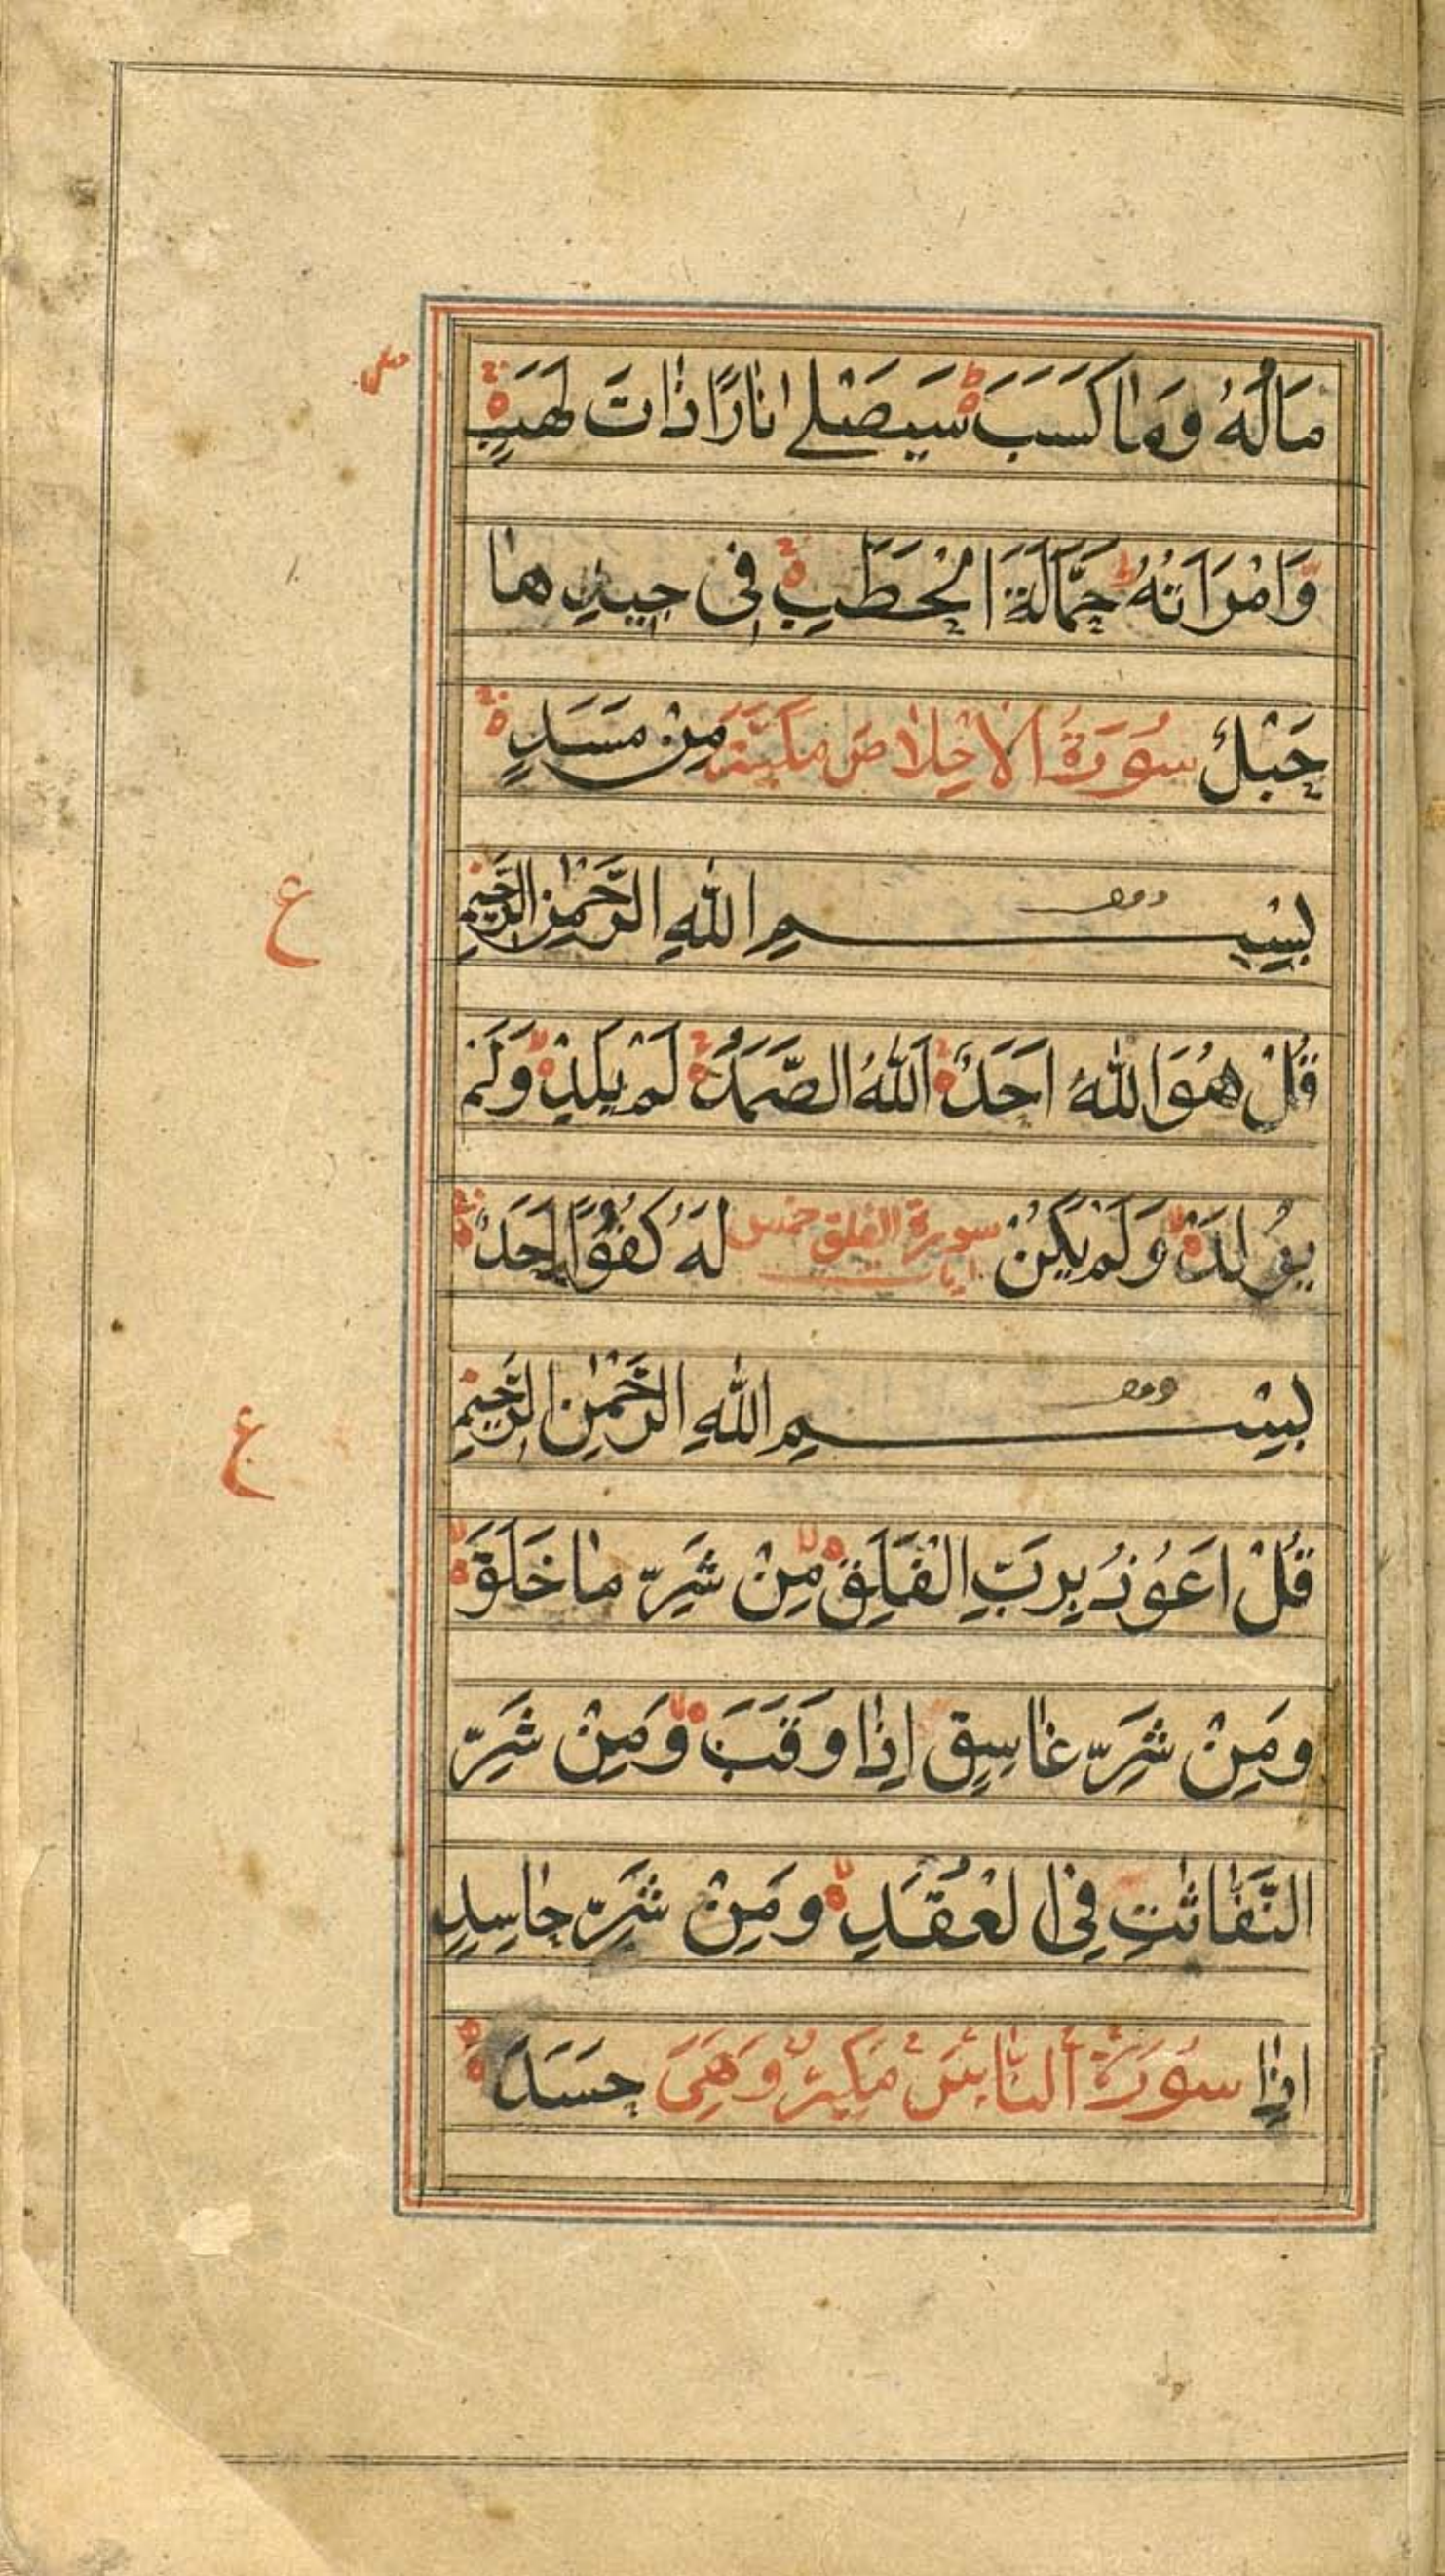 مَالُهٗ وَمَا كَسَبَ سَيَصْلٰے انَارًا ذَاتَ لَهَبٍ
وَّامْرَاَتُهٗ حَمَّالَةَ الْحَطَبِ فِى جِيدِهَا
حَبْلٌ سُورَةُ الْاِخْلَاصِ مَكِيَّة مِنْ مَسَدٍ
بِسْمِ اللّٰهِ الرَّحْمٰنِ الرَّحِيْمِ
ع
قُلْ هُوَ اللّٰهُ اَحَدٌ اَللّٰهُ الصَّمَدُ لَمْ يَلِدْ وَلَمْ
يُولَدْ وَلَمْ يَكُنْ سورة الفلق خمس ايات لَهٗ كُفُوًا اَحَدٌ
بِسْمِ اللّٰهِ الرَّحْمٰنِ الرَّحِيْمِ
ع
قُلْ اَعُوْذُ بِرَبِّ الْفَلَقِ مِنْ شَرِّ مَا خَلَقَ
وَمِنْ شَرِّ غَاسِقٍ اِذَا وَقَبَ وَمِنْ شَرِّ
النَّفّٰاثٰتِ فِى الْعُقَدِ وَمِنْ شَرِّ حَاسِدٍ
اِذَا سُورَةُ النَّاسِ مَكِية وَهِىَ حَسَدَ